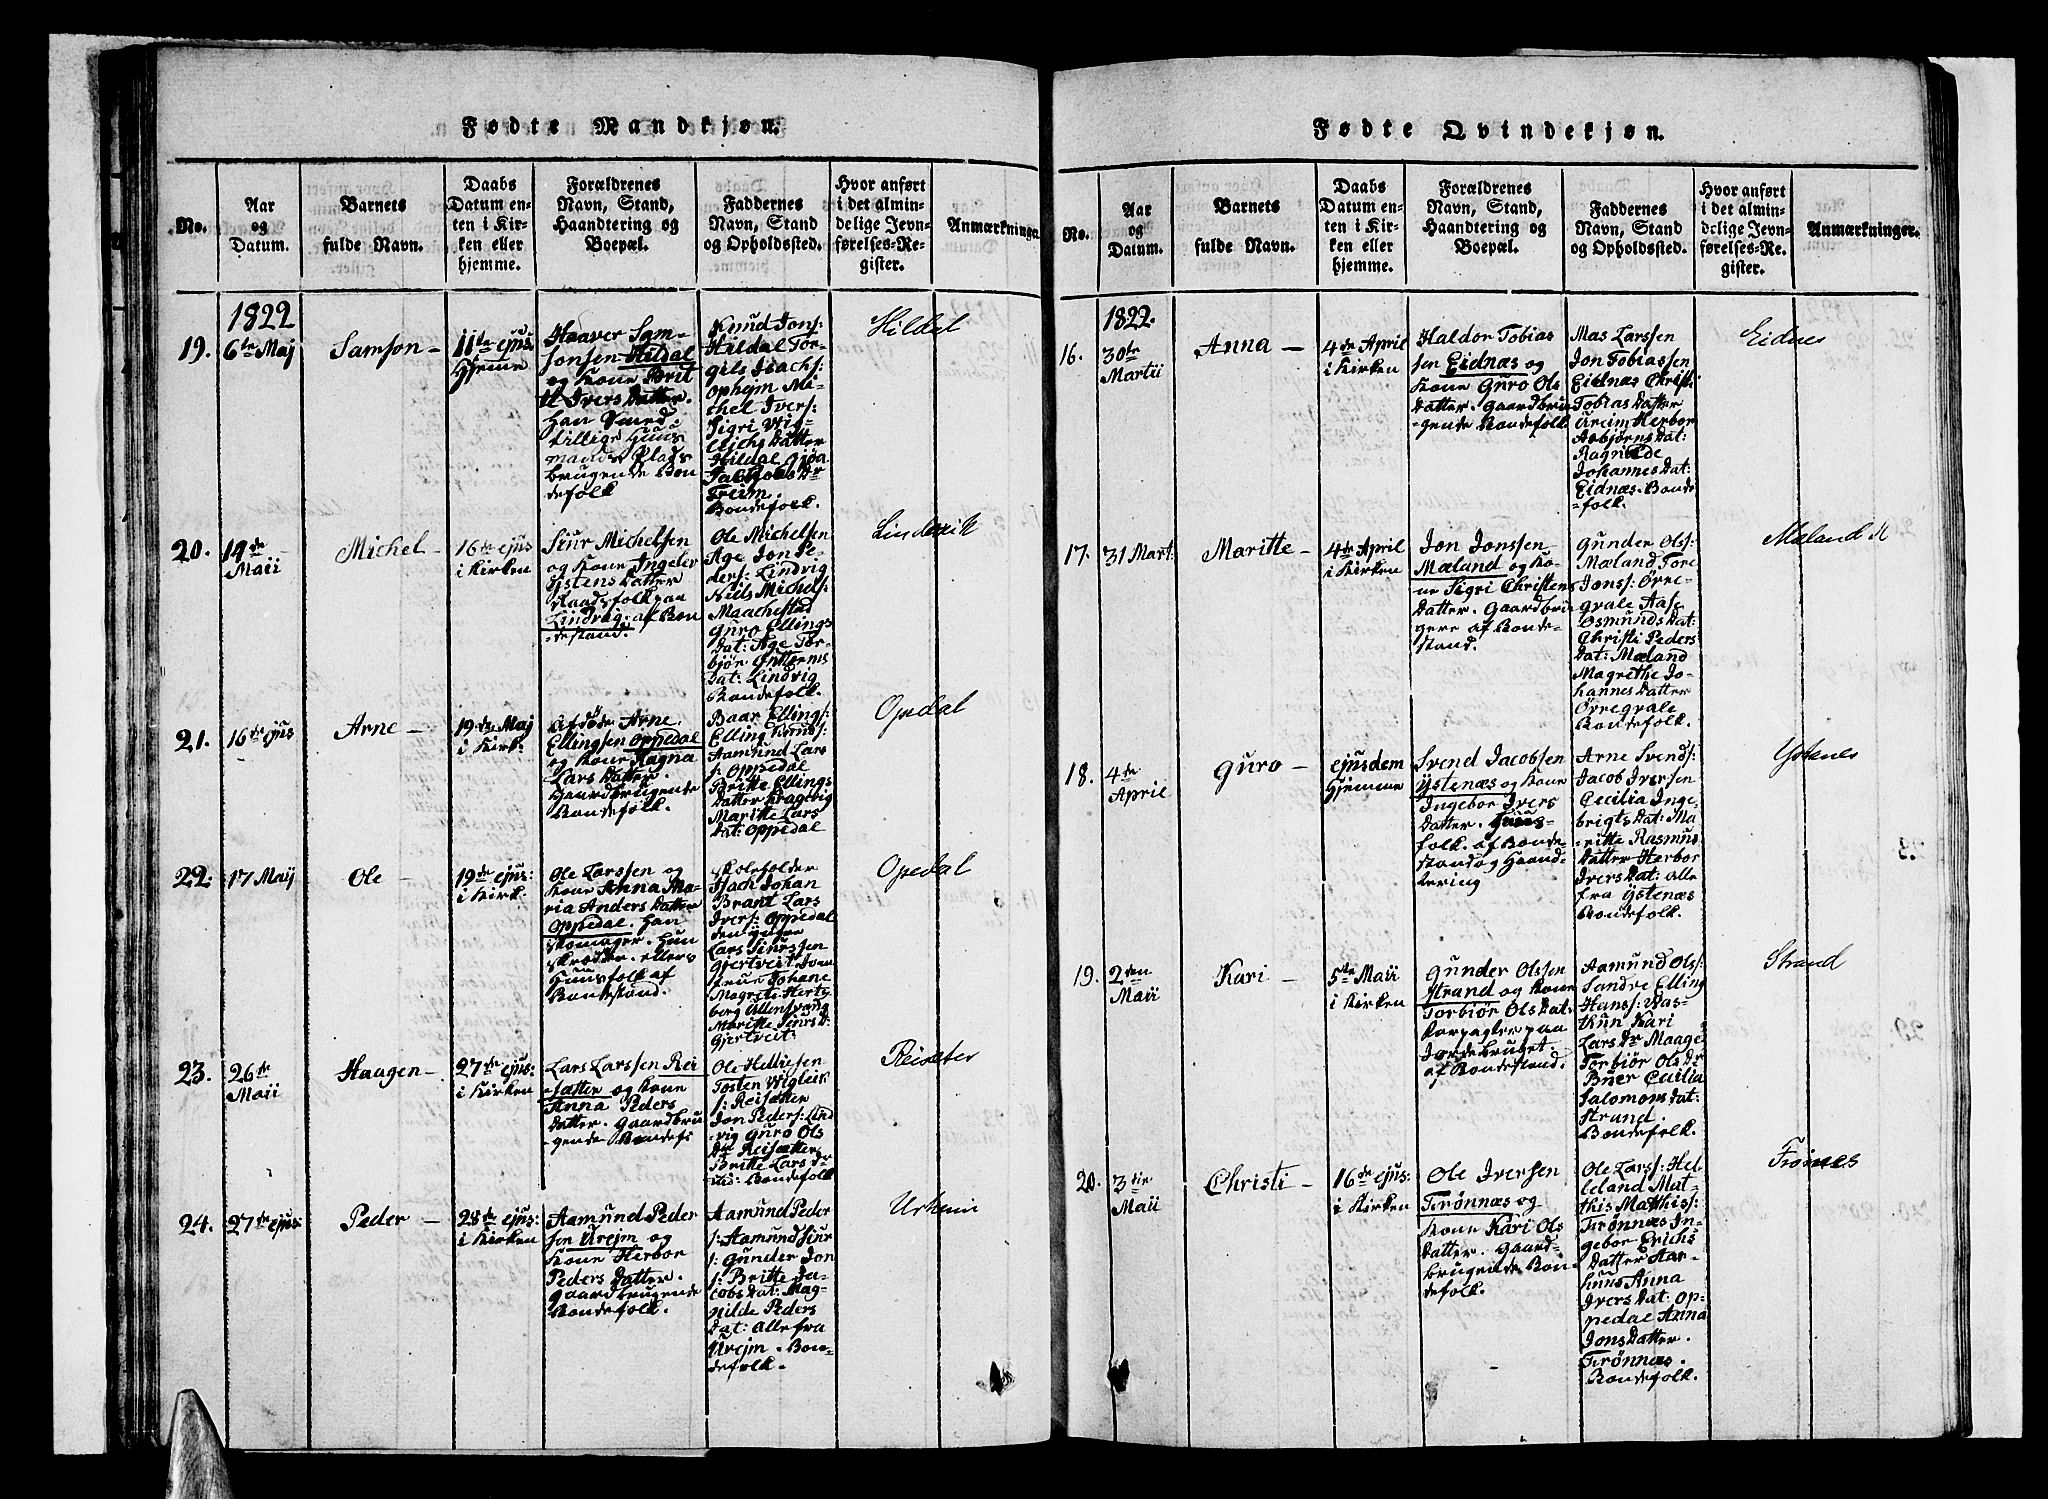 Fødte Mandkjøn.
No.
Aar
og
Datum.
Barnets
fulde Navn.
Daabs
Datum en-
ten i Kir-
ken eller
hjemme.
Forældrenes
Navn, Stand,
Haandtering og
Boepæl.
Faddernes
Navn, Stand
og Opholdssted.
Hvor anført
i det almin-
delige Jevn-
førelses-Re-
gister.
Anmærkninger.
1822
19.
6te Maj
Samson
11te ejus
Hjemme
Haaver Sam-
sonsen Hildal
og Kone Brit
Ivers Datter.
han Smed
tillige Huus
mands Plads
brugende Bon
defolk
Knud Jons:
Hildal Tor-
gils Isachs:
Ophejm Mi-
chel Ivers:
Sigri Wig-
leichs Datter
Hildal Gjøa
Jacobs Dr
Freim.
Bondefolk.
Hildal
20.
14de
Maii
Michel
16de ejus
i Kirken
Siur Michelsen
og Kone Ingeler
Ystens Datter
Raadsfolk paa
Lindvig. af Bon
destand.
Ole Michelsen
Age Jon Pe-
ders: Lindvig
Niels Michels:
Maachestad
Guro Ellings
Dat: Age Tor-
bjør Gutterms
Dat: Lindvig
Bondefolk.
Lindevik
21.
16de ejus
Arne
19de Maj
i Kirk:
Afdøde Arne
Ellingsen Oppedal
og Kone Ragna
Lars Datter.
Gaardbrugende
Bondefolk.
Baar Ellings:
Elling
Aamund Lars
s: Oppedal
Britte Ellings
Datter Kragevig
Maritte Lars
Dat: Oppedal
Opedal
22.
17 Maij
Ole
19de ejus:
i Kirk.
Ole Larssen og
Kone Anna Ma-
ria Anders Datter
Oppedal. han
Skomager. hun
Skrædder. ellers
Huusfolk af
Bondestand.
Skoleholder
Isach Johan
Brant Lars
Ivers: Oppedal
den yngre
Lars Siurssen
Gjertveit Jom
frue Johane
Magrete Herts
berg Ullensvang
Maritte Siurs D:
Gjertveit:
Opedal
23.
26de
Maii
Haagen
27de ejus:
i Kirken
Lars Larssen Rei
sætter og Kone
Anna Peders
Datter. Gaardbru
gende Bondefs
Ole Helliesen
Tosten Wigleik
s: Reisæter
Jon Peders: Lind
vig Guro Ols
Dtr Reisætter
Britte Lars Dr
Bondefolk
Reiseter
24.
27de ejus
Peder
28de ejus:
i Kirken
Aamund Peder
sen Urejm og
Kone Herbor
Peders Datter.
Gaardbrugende
Bondefolk.
Aamund Peder
s: Aamund Siur
s: Gunder Jon
s: Britte Ja-
cobs Dat: Mag-
nilde Peders
Dat: Alle fra
Urejm. Bon-
defolk.
Urheim
Fødte Qvindekjøn.
No.
Aar
og
Datum.
Barnets
fulde Navn.
Daabs
Datum en-
ten i Kir-
ken eller
hjemme.
Forældrenes
Navn, Stand,
Haandtering og
Boepæl.
Faddernes
Navn, Stand
og Opholdssted.
Hvor anført
i det almin-
delige Jevn-
førelses-Re-
gister.
Anmærkninger.
1822.
16.
30te
Martii
Anna
4de April
i Kirken
Haldor Tobias
sen Eidnæs og
Kone Guro Ols
Datter. Gaardbru
gende Bondefolk
Mas Larssen
Jon Tobiassen
Eidnæs Christi
Tobias Datter
Ureim Herbor
Asbjørns Dat:
Ragnilde
Johannes Dat:
Eidnæs. Bonde
folk.
Eidnes
17.
31 Mart.
Maritte
4de April
i Kirken
Jon Jonssen
Mæland og Ko-
ne Sigri Christens
Datter. Gaardbru
gere af Bonde-
stand.
Gunder Ols:
Mæland Tore
Jons: Ørre-
gvale Aase
Osmunds Dat:
Christi Peders
Dat: Mæland
Magrethe Jo-
hannes Datter
Ørregvale
Bondefolk.
Mæland
18.
4de
April
Guro
ejusdem
Hjemme
Svend Jacobsen
Ystenæs og Kone
Ingebor Ivers
Datter. Huus-
folk. af Bonde-
stand og Haand-
tering
Arne Svends:
Jacob Iversen
Cecilia Inge-
brigts Dat: Ma-
ritte Rasmus
Datter Herbor
Ivers Dat: alle
fra Ystenæs
Bondefolk.
Ystenes
19.
2den
Maii
Kari
5te Maii
i Kirken
Gunder Olssen
Strand og Kone
Torbiør Ols Dat.
Forpagter paa
Jordebruget.
af Bondestand.
Aamund Ols:
Sandre Elling
Hans: Bas-
Kun Kari
Lars Dr Maage
Torbiør Ols Dr
Buer Cecilia
Salomons Dat:
Strand.
Bondefolk.
Strand
20.
3die
Maii
Christi
16de ejus:
i Kirken
Ole Iversen
Frønnæs og
Kone Kari Ols
Datter. Gaard-
brugende Bon-
defolk.
Ole Lars: Hel-
leland Mat-
this Matthis:
Frønnæs In-
gebor Erichs
Datter Aar-
huus Anna
Ivers Dat: Op-
pedal Anna
Jons Datter.
Frønnæs.
Bondefolk.
Frønes